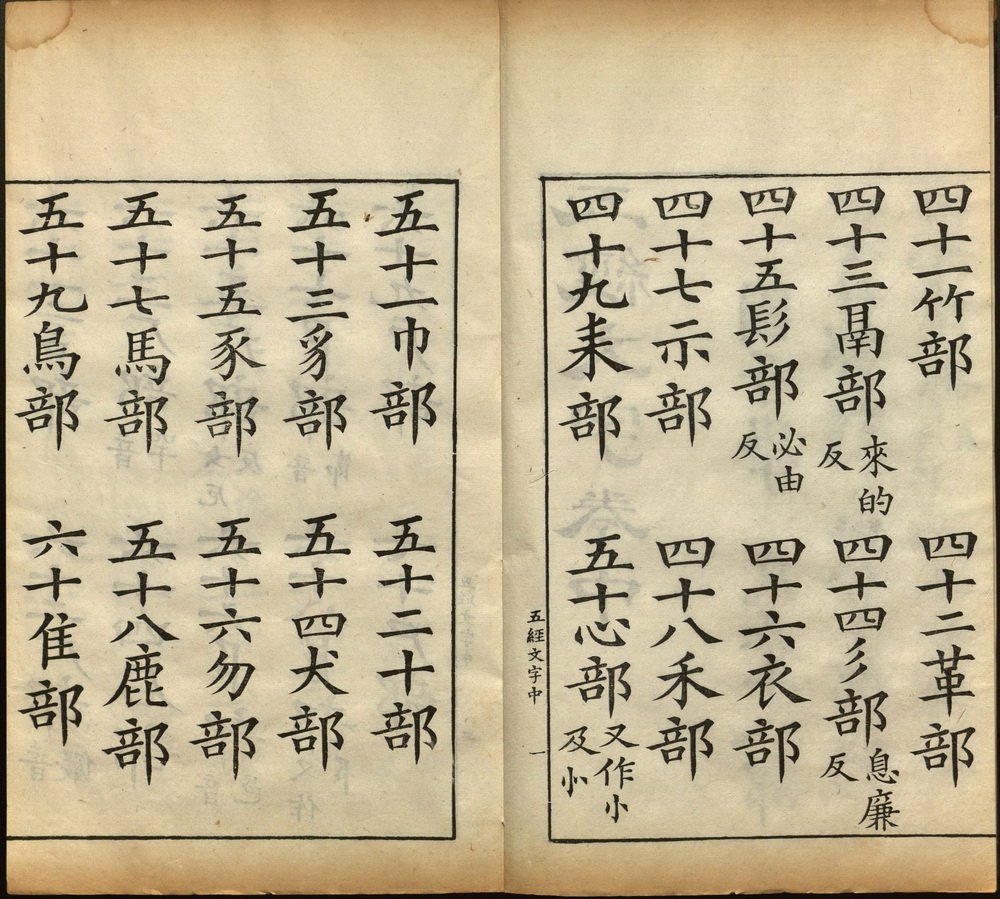 四十一竹部　四十二革部
四十三鬲部來的反　四十四彡部息廉反
四十五髟部必由反　四十六衣部
四十七示部　四十八禾部
四十九耒部　五十心部又作小及㣺
五經文字中　一
五十一巾部　五十二十部
五十三豸部　五十四犬部
五十五豕部　五十六勿部
五十七馬部　五十八鹿部
五十九鳥部　六十隹部